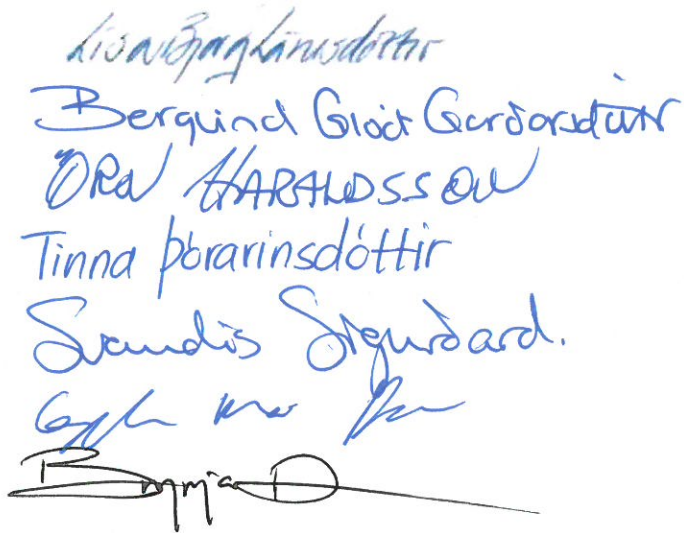 Lísa Björg Lárusdóttir
Berglind Glóð Garðarsdóttir
ÖRN HARALDSSON
Tinna Þórarinsdóttir
Svandís Sigurðard.
Brynja